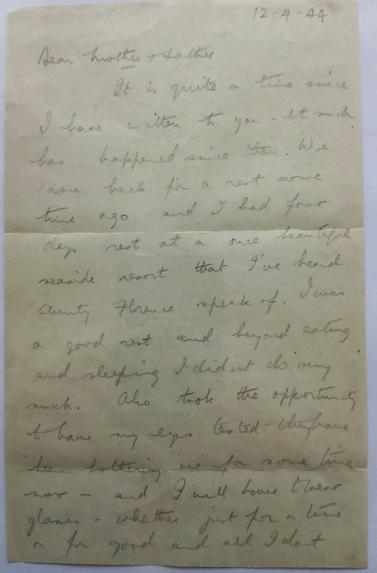 12-4-44
Dear Mother & Father
It is quite a time since
I have written to you - but much
has happened since then. We
came back for a rest some
time ago and I had four
days rest at a once beautiful
seaside resort that I've heard
Aunty Florence speak of. I was
a good rest and beyond eating
and sleeping I didn't do very
much. Also took the opportunity
to have my eyes tested - they have
been bothering me for some time
now - and I will have to wear
glasses - whether just for a time
or for good and all I don't